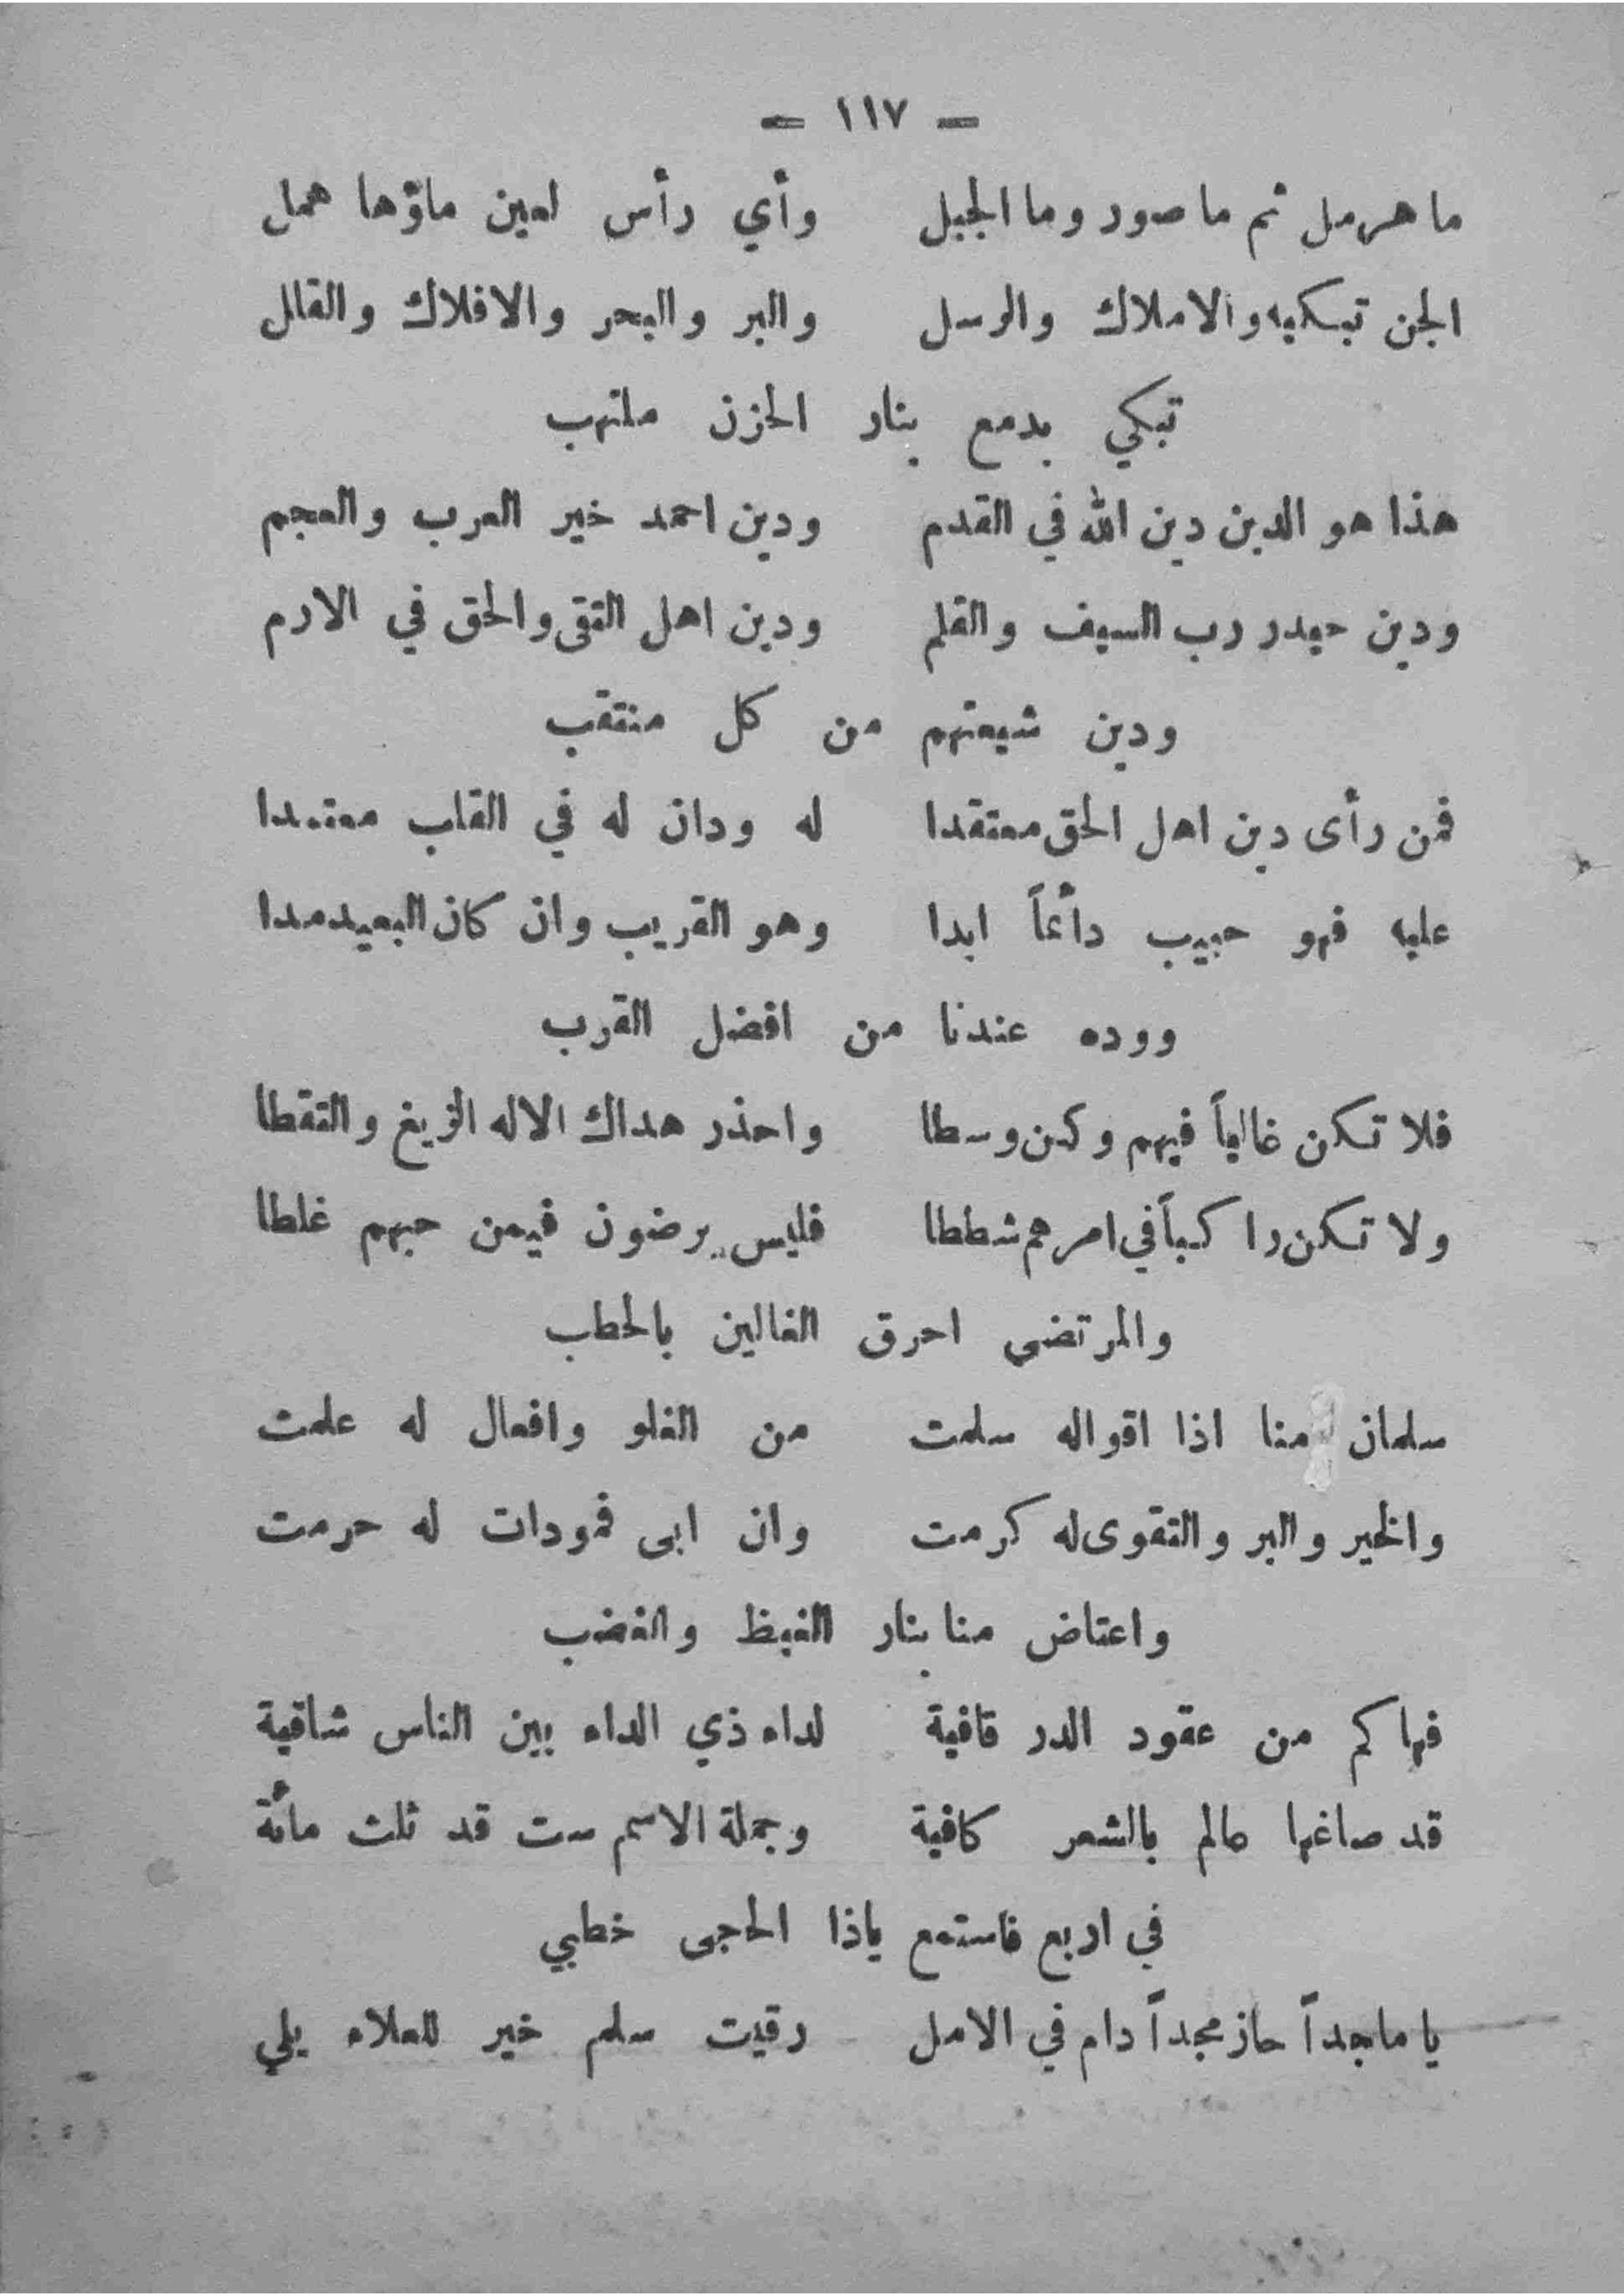 — ١١٧ —
ما هرمل ثم ما صور وما الجبل وأي رأس لعين ماؤها همل
الجن تبكيه والاملاك والرسل والبر والبحر والافلاك والقلل
تبكي بدمع بنار الحزن ملتهب
هذا هو الدين دين الله في القدم ودين احمد خير العرب والعجم
ودين حيدر رب السيف والقلم ودين اهل التقى والحق في الارم
ودين شيعتهم من كل منتقب
فمن رأى دين اهل الحق معتقدا له ودان له في القلب معتمدا
عليه فهو حبيب دأئماً ابدا وهو القريب وان كان البعيد مدا
ووده عندنا من افضل القرب
فلا تكن غالياً فيهم وكن وسطا واحذر هداك الاله الزيغ والتقطا
ولا تكن راكباً في امرهم شططا فليس يرضون فيمن حبهم غلطا
والمرتضى احرق الغالين بالحطب
سلمان منا اذا اقواله سلمت من الغلو وافعال له علمت
والخير والبر والتقوى له كرمت وان ابى فمودات له حرمت
واعتاض منا بنار الغيظ والغضب
فهاكم من عقود الدر قافية لداء ذي الداء بين الناس شاقية
قد صاغها عالم بالشعر كافية وجملة الاسم ست قد ثلث مائة
في اربع فاستمع ياذا الحجى خطبي
يا ماجداً حاز مجداً دام في الامل رقيت سلم خير للعلاء يلي